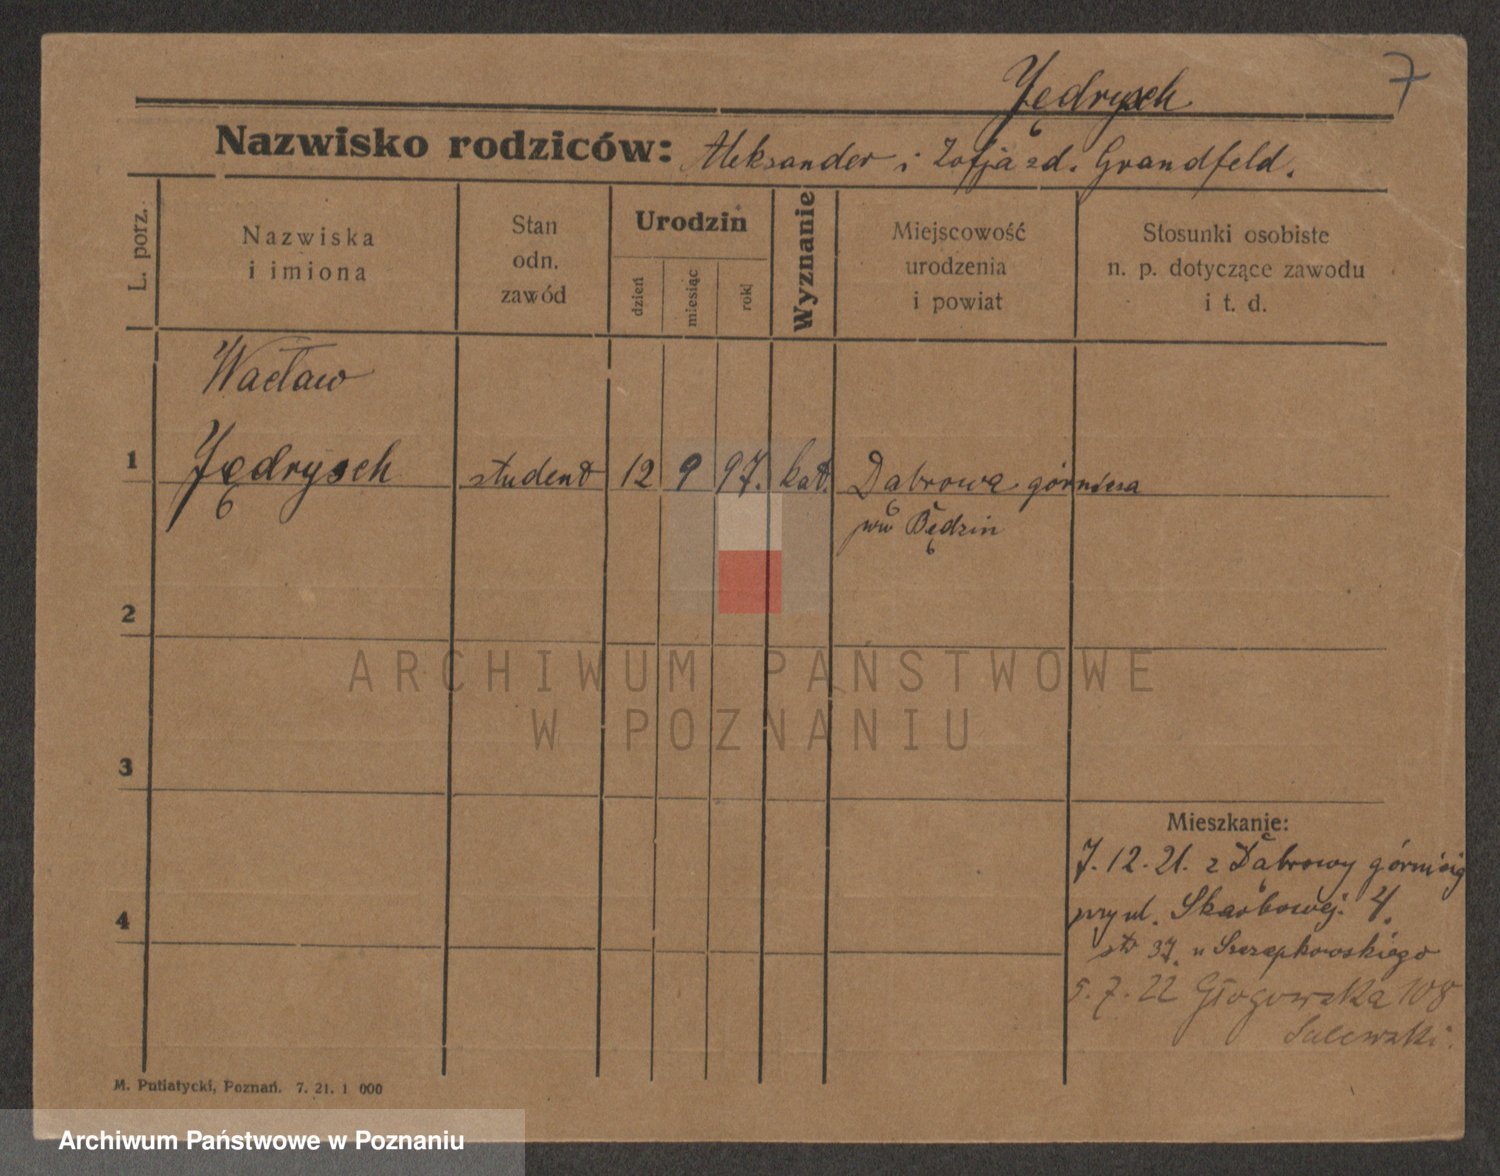 7
Jędrysch
Nazwisko rodziców: Aleksander i Zofja zd. Grandfeld.
L. porz.
Nazwiska
i imiona
Stan
odn.
zawód
Urodzin
dzień
miesiąc
rok
Wyznanie
Miejscowość
urodzenia
i powiat
Stosunki osobiste
n. p. dotyczące zawodu
i t. d.
Wacław
1 Jędrysch student 12 9 97. kat. Dąbrowa górnicza
pow Będzin
2
3
Mieszkanie:
7. 12. 21. z Dąbrowy górniczej
przy ul. Skarbowej 4.
4
37 u Szczepkowskiego
5. 7. 22 Głogowska 108
M. Putiatycki, Poznań. 7. 21. 1 000
ARCHIWUM PAŃSTWOWE
W POZNANIU
Archiwum Państwowe w Poznaniu